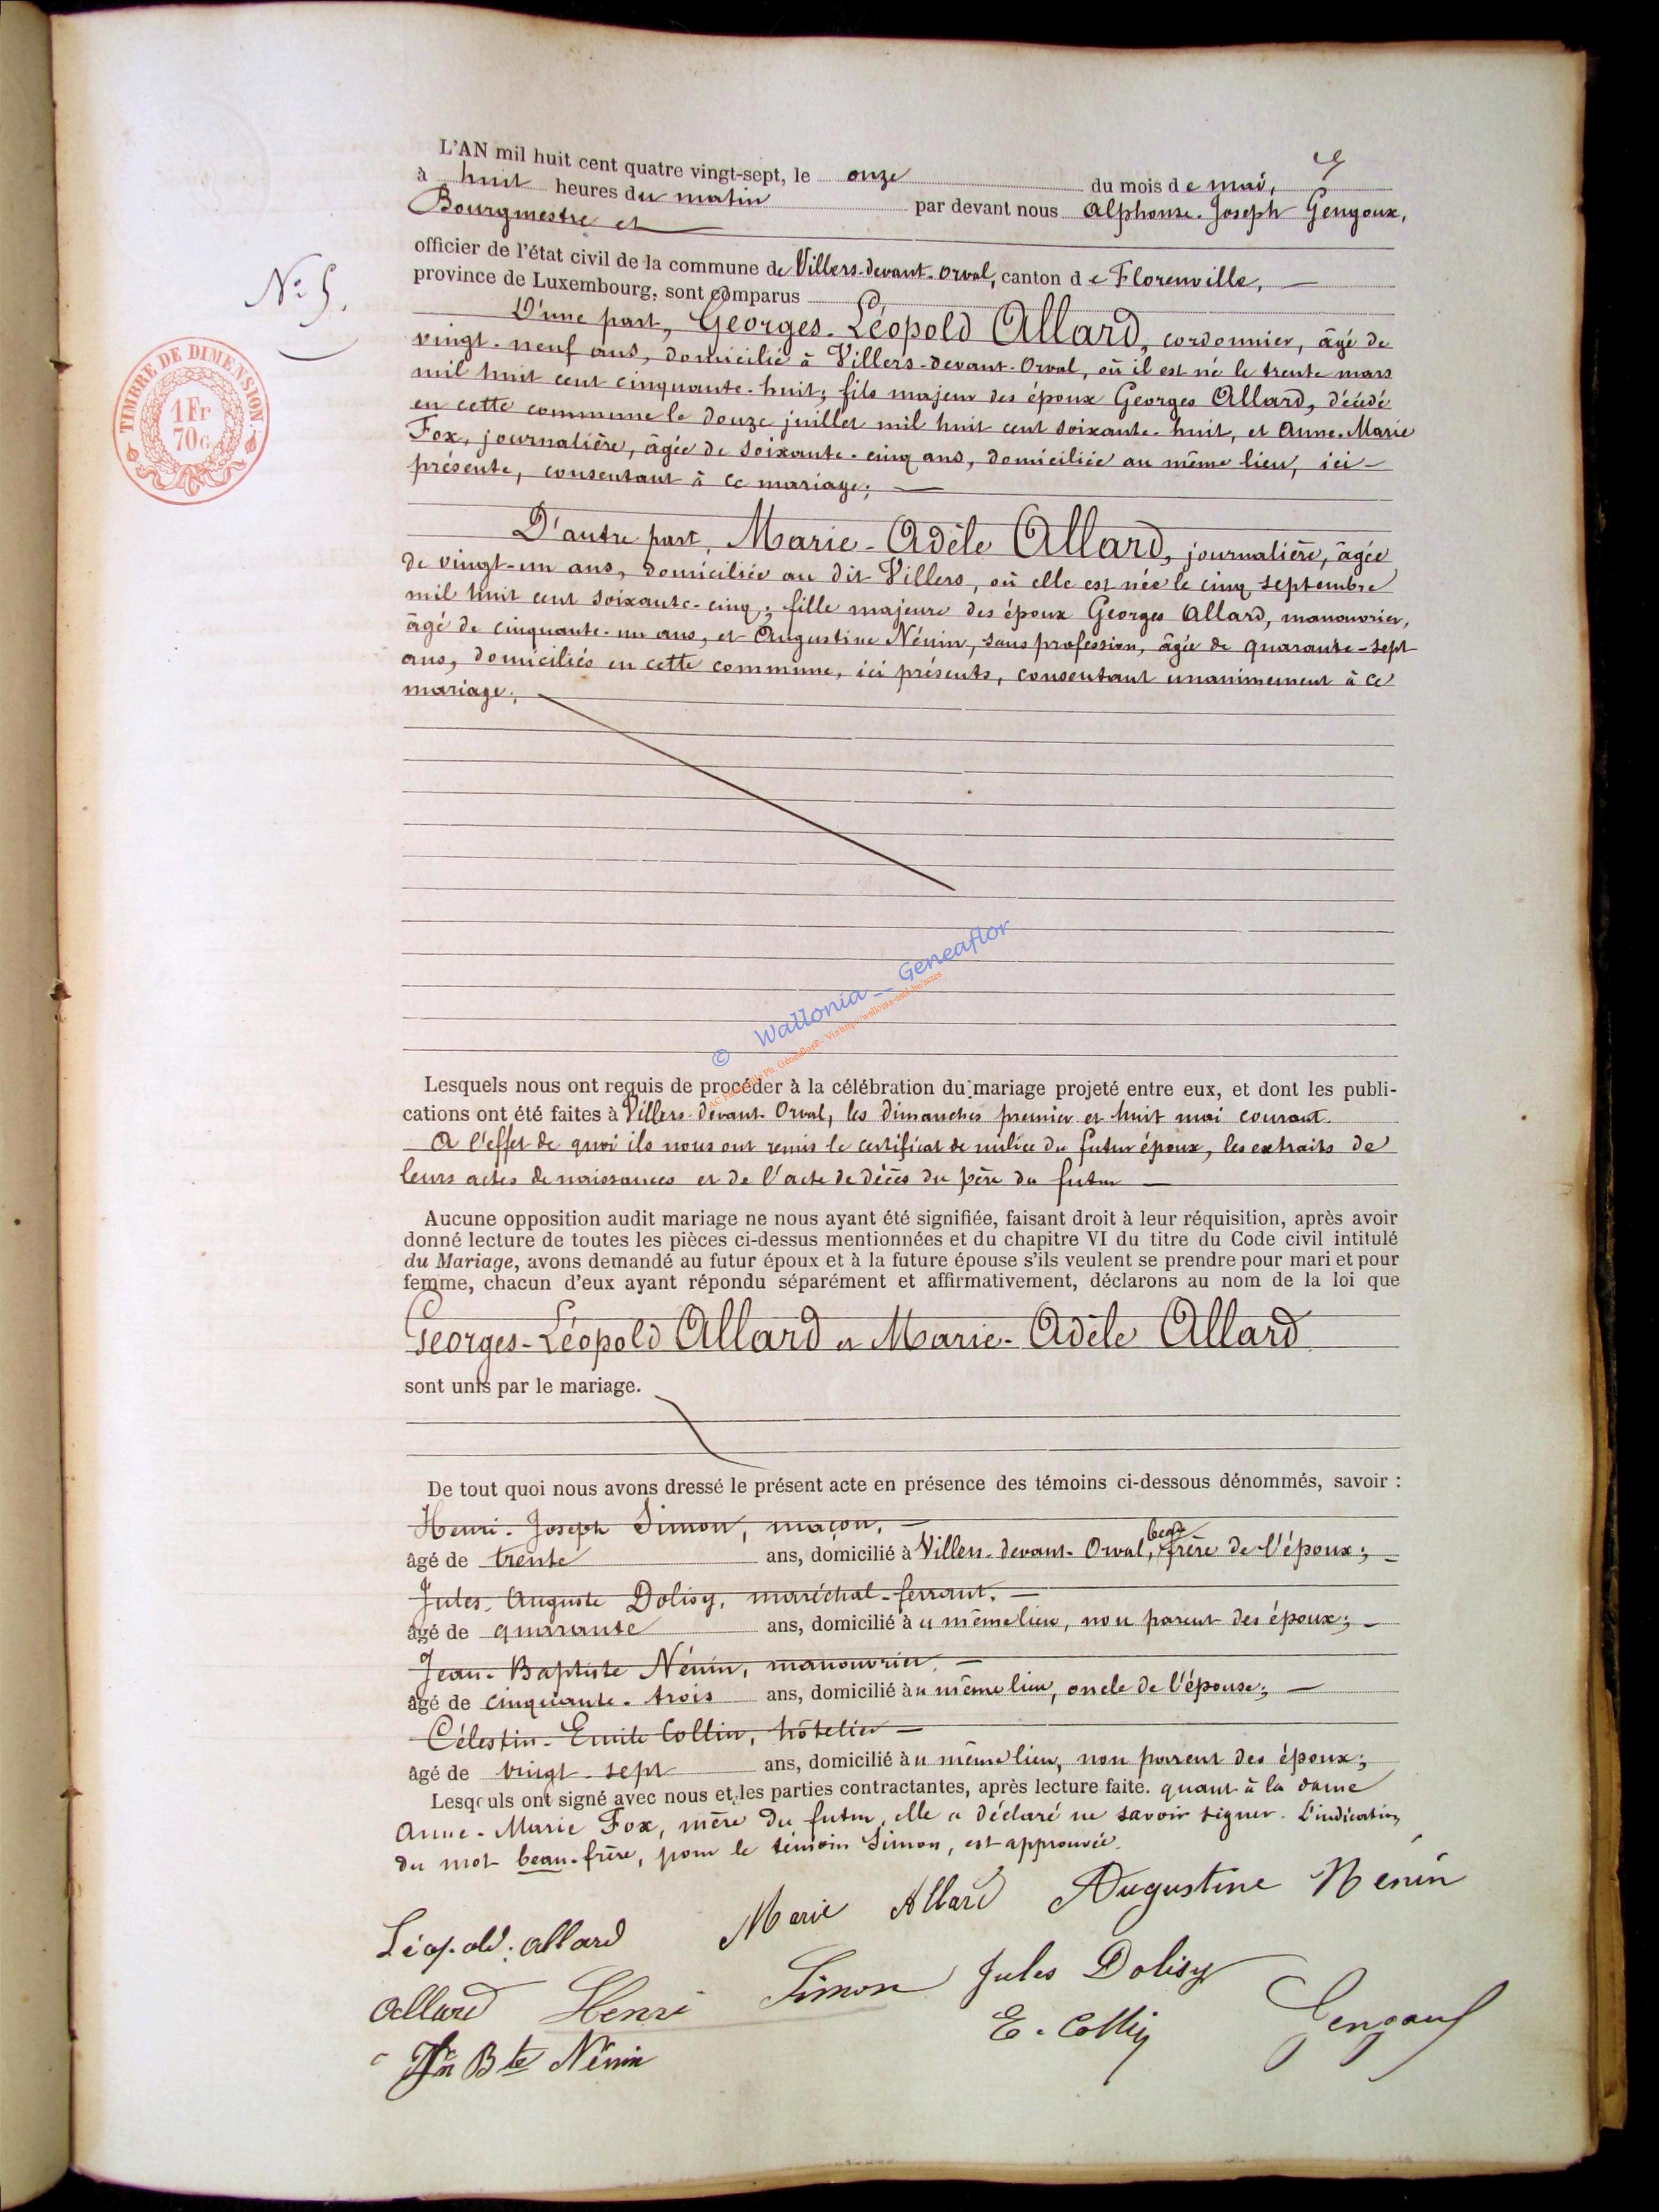 L'AN mil huit cent quatre vingt-sept, le onze du mois de mai,
à huit heures du matin par devant nous Alphonse-Joseph Gengoux,
Bourgmestre et
officier de l'état civil de la commune de Villers-devant-Orval, canton de Florenville,
province de Luxembourg, sont comparus
N° 5.
TIMBRE DE DIMENSION
1 Fr
70 c.
D'une part, Georges-Léopold Allard, cordonnier, âgé de
vingt-neuf ans, domicilié à Villers-devant-Orval, où il est né le trente mars
mil huit cent cinquante-huit; fils majeur des époux Georges Allard, décédé
en cette commune le douze juillet mil huit cent soixante-huit, et Anne-Marie
Fox, journalière, âgée de soixante-cinq ans, domiciliée au même lieu, ici
présente, consentant à ce mariage;
D'autre part, Marie-Adèle Allard, journalière, âgée
de vingt-un ans, domiciliée au dit Villers, où elle est née le cinq septembre
mil huit cent soixante-cinq; fille majeure des époux Georges Allard, manouvrier,
âgé de cinquante-un ans, et Augustine Nénin, sans profession, âgée de quarante-sept
ans, domiciliés en cette commune, ici présents, consentant unanimement à ce
mariage;
© Wallonia __ Geneaflor
Lesquels nous ont requis de procéder à la célébration du mariage projeté entre eux, et dont les publi-
cations ont été faites à Villers-devant-Orval, les dimanches premier et huit mai courant.
A l'effet de quoi ils nous ont remis le certificat de milice du futur époux, les extraits de
leurs actes de naissances et de l'acte de décès du père du futur
Aucune opposition audit mariage ne nous ayant été signifiée, faisant droit à leur réquisition, après avoir
donné lecture de toutes les pièces ci-dessus mentionnées et du chapitre VI du titre du Code civil intitulé
du Mariage, avons demandé au futur époux et à la future épouse s'ils veulent se prendre pour mari et pour
femme, chacun d'eux ayant répondu séparément et affirmativement, déclarons au nom de la loi que
Georges-Léopold Allard et Marie-Adèle Allard
sont unis par le mariage.
De tout quoi nous avons dressé le présent acte en présence des témoins ci-dessous dénommés, savoir :
Henri-Joseph Simon, maçon,
âgé de trente ans, domicilié à Villers-devant-Orval, beau-frère de l'époux;
Jules-Auguste Dolisy, maréchal-ferrant,
âgé de quarante ans, domicilié au même lieu, non parent des époux;
Jean-Baptiste Nénin, manouvrier,
âgé de cinquante-trois ans, domicilié au même lieu, oncle de l'épouse;
Célestin-Emile Collin, hôtelier
âgé de vingt-sept ans, domicilié au même lieu, non parent des époux;
Lesquels ont signé avec nous et les parties contractantes, après lecture faite. quant à la dame
Anne-Marie Fox, mère du futur, elle a déclaré ne savoir signer. L'indication
du mot beau-frère, pour le témoin Simon, est approuvée.
Léopold Allard Marie Allard Augustine Nenin
Allard Henri Simon Jules Dolisy
Jn Bte Nénin E. Collin Gengoux